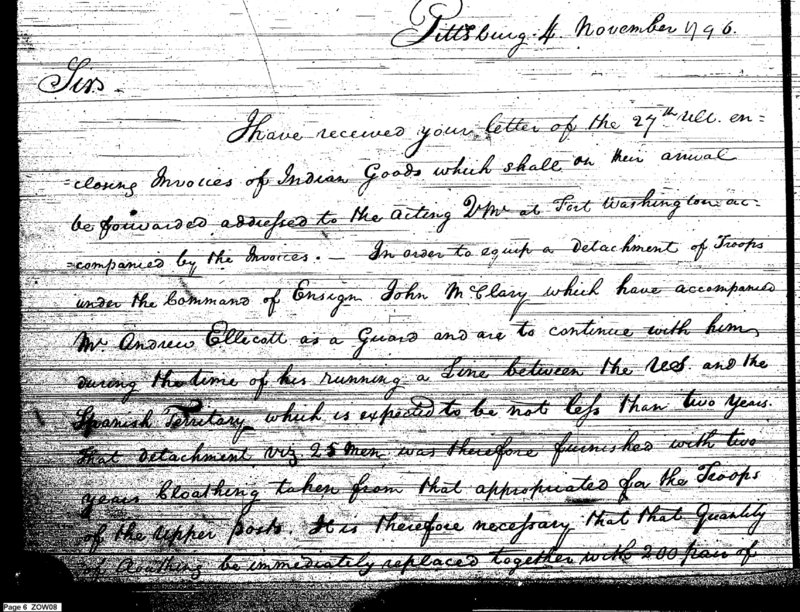 Pittsburg 4 November 1796.
Sirs
I have received your letter of the 27th Ult. en=
=closing Invoices of Indian Goods which shall on their arrival
be forwarded addressed to the Acting QMr at Fort Washington ac=
=companied by the Invoices. — In order to equip a detachment of Troops
under the Command of Ensign John McClary which have accompanied
Mr Andrew Ellicott as a Guard and are to continue with him,
during the time of his running a Line between the U.S. and the
Spanish Territary which is expected to be not less than two years.
that detachment viz 25 Men was therefore furnished with two
years Cloathing taken from that appropriated for the Troops
of the upper posts. It is therefore necessary that that Quantity
of Cloathing be immediately replaced together with 200 pair of
Page 6 ZOW08